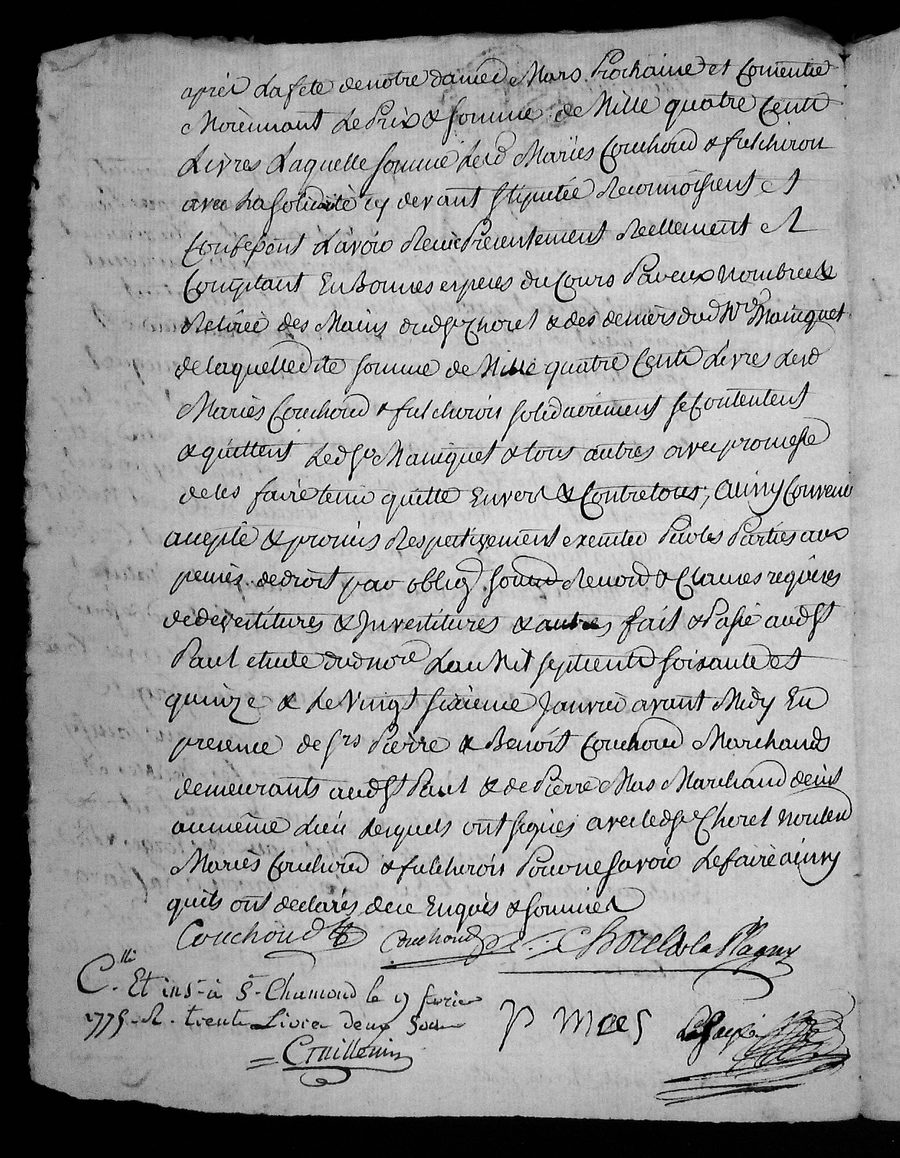 après La fete de notre damed Mars Prochaine et
Moiennant Le Prix & Somme de Mille quatre Cents
Livres Laquelle Somme Lesd. Mariés Couchoud & fulchiron
avec La Solidité cy devant Stipulée Reconnoissent et
Confessent L'avoir Reçue Presentement Reellement Et
Comptant En Bonnes especes du Cours Nombrée &
Retirée des Mains dud Sr. Choret & des deniers dud Maniquet
de laquelled'te Somme de Mille quatre Cents Livres Lesd
Mariés Couchoud & fulchiron Solidairement Se Contentent
& quittent Led Sr. Maniquet & tous autres avec promesse
de les faire tenir quitte Envers & Contre tous, ainsy Convenu
accepté & promis Respectivement executer Par les Parties aux
peines de droit par oblig. Renond & Clauses requises
de devestitures & Investitures & autres fait & Passé aud St
Paul etude dud nore. L'an Mil Septcents Soixante et
quinze & Le Vingt Sixieme Janvier avant Midy En
presence de Srs. Pierre & Benoit Couchoud Marchands
demeurants aud St Paul & de Pierre Mas Marchand
au même Lieu Lesquels ont Signés avec led Sr. Choret non Lesd
Mariés Couchoud & fulchiron Pour ne Savoir Le faire ainsy
quils ont declarés de ce Enquis & Sommés
Couchoud Couchoud
P Maes
Cllé. Et ins. à St. Chamond le 9 fevrier
1775. R. trente Livres deux Sols